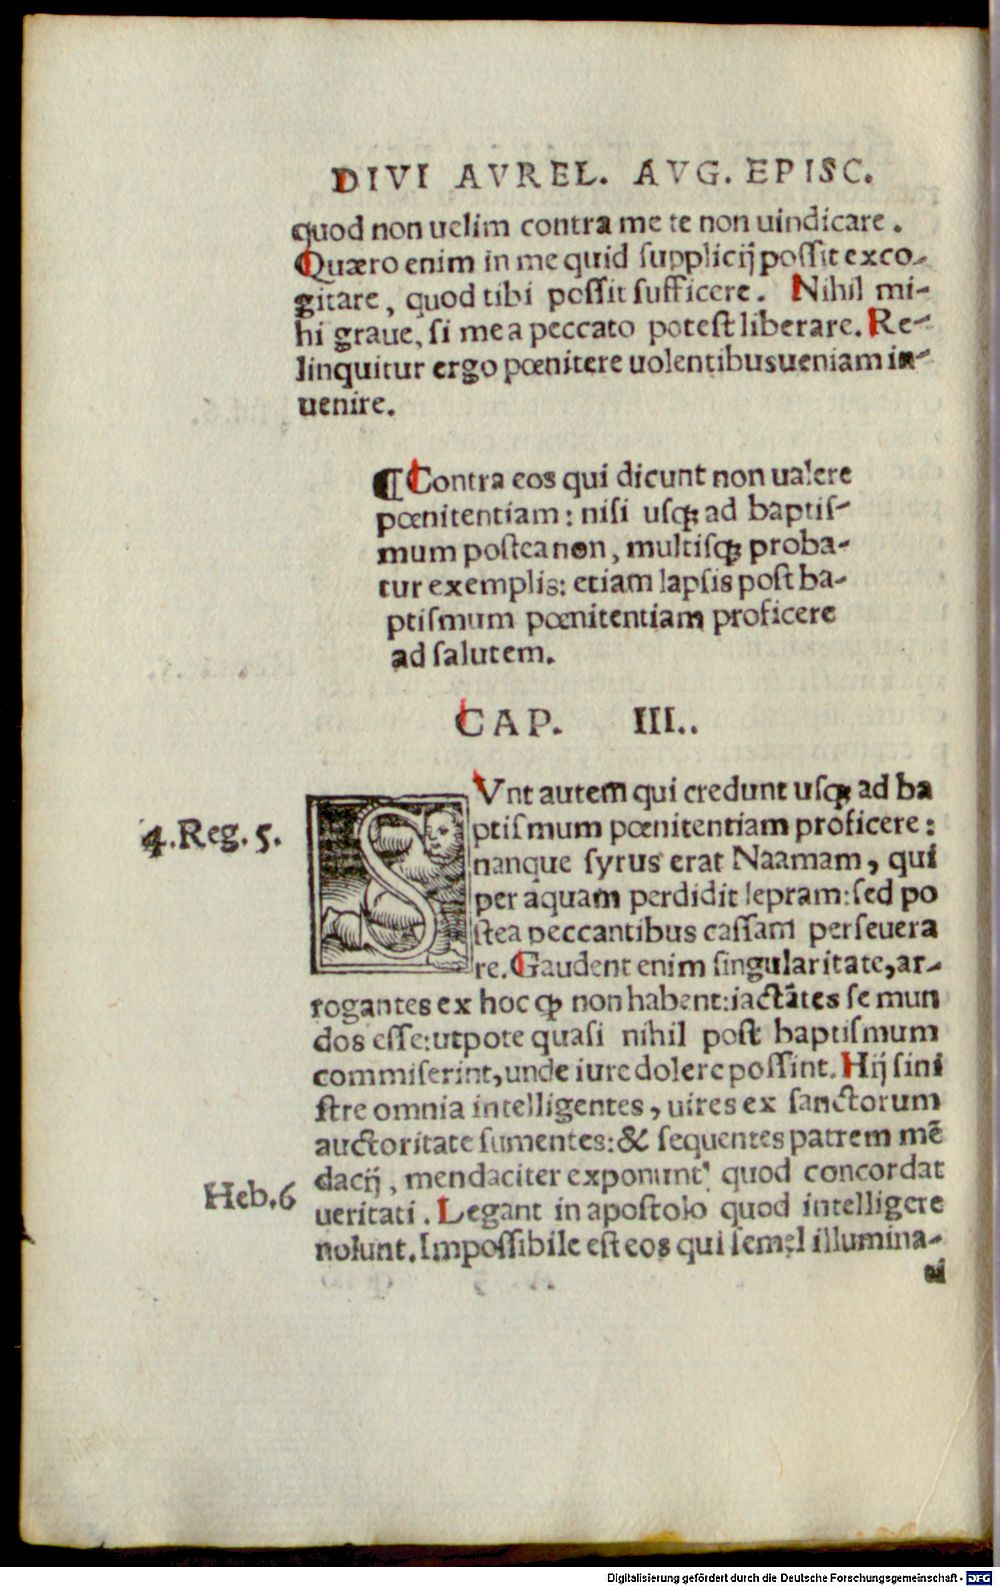 DIVI AVREL. AVG. EPISC.
quod non uelim contra me te non uindicare.
Quæro enim in me quid supplicij possit exco-
gitare, quod tibi possit sufficere. Nihil mi-
hi graue, si me a peccato potest liberare. Re-
linquitur ergo pœnitere uolentibus ueniam in-
uenire.
¶ Contra eos qui dicunt non ualere
pœnitentiam: nisi usqꝫ ad baptis-
mum postea non, multisqꝫ proba-
tur exemplis: etiam lapsis post ba-
ptismum pœnitentiam proficere
ad salutem.
CAP. III..
SVnt autem qui credunt usqꝫ ad ba
ptismum pœnitentiam proficere:
4.Reg.5.
nanque syrus erat Naamam, qui
per aquam perdidit lepram: sed po
stea peccantibus cassam perseuera
re. Gaudent enim singularitate, ar-
rogantes ex hoc ꝙ non habent: iactātes se mun
dos esse: utpote quasi nihil post baptismum
commiserint, unde iure dolere possint. Hij sini
stre omnia intelligentes, uires ex sanctorum
auctoritate sumentes: & sequentes patrem mē
dacij, mendaciter exponunt quod concordat
Heb.6
ueritati. Legant in apostolo quod intelligere
nolunt. Impossibile est eos qui semel illumina-
ti
Digitalisierung gefördert durch die Deutsche Forschungsgemeinschaft - DFG